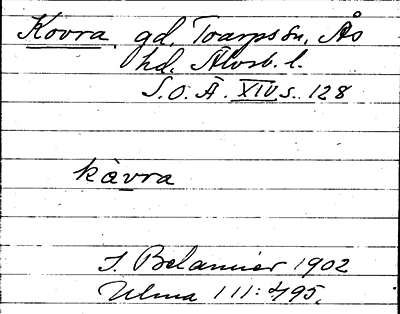 Kovra. gd. Toarps sn. Ås
hd. Älvsb. l.
S.O.Ä. XIV s. 128
kàvra
I. Belanner 1902
Ulma 111:495.